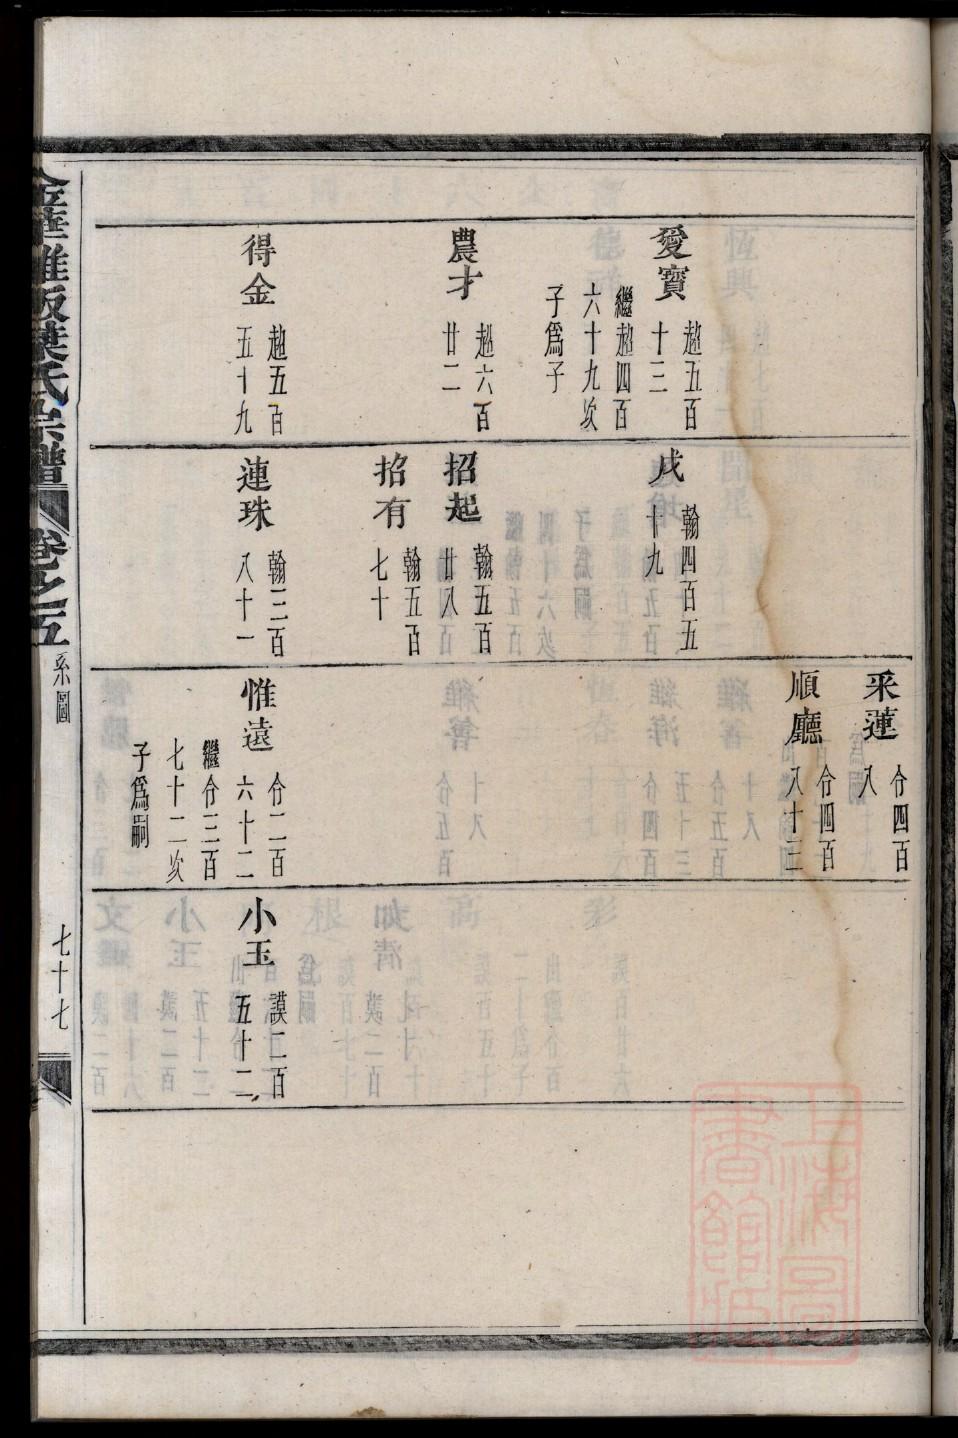 愛寶
趙五百
十三
繼趙四百
六十九次
子爲子
農才
趙六百
廿二
得金
趙五百
五十九
戌
翰四百五
十九
招起
翰五百
廿八
招有
翰五百
七十
連珠
翰三百
八十一
采蓮
仱四百
八
順廳
仱四百
八十三
惟遠
仱二百
六十二
繼仱三百
七十二次
子爲嗣
小玉
謨二百
五十二
金華 葉氏宗譜
卷之五
系圖
七十七
上海圖
書館藏